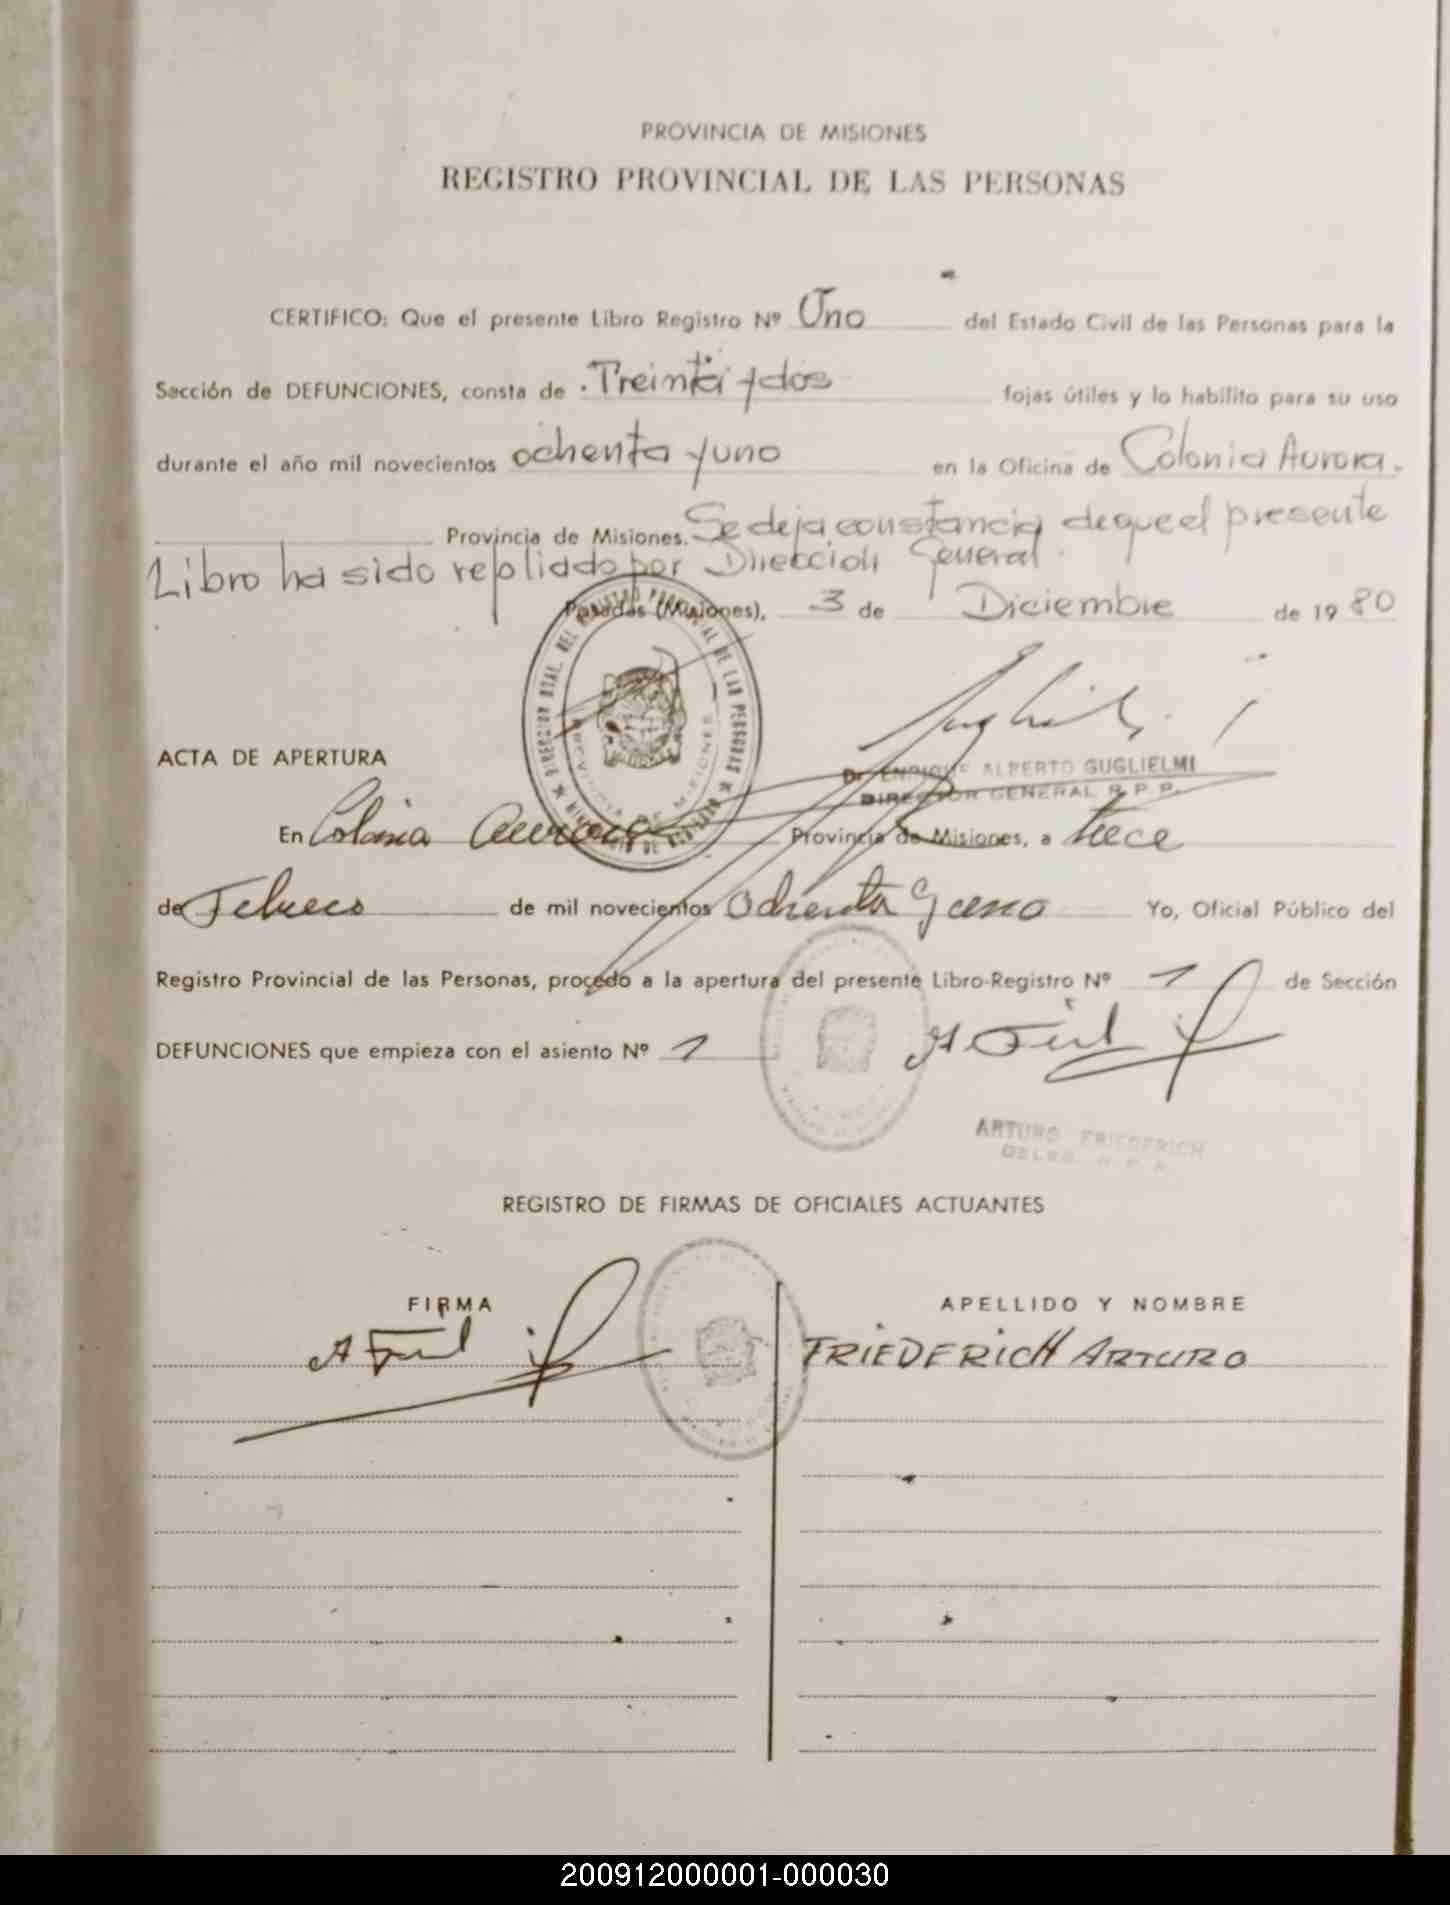 PROVINCIA DE MISIONES
REGISTRO PROVINCIAL DE LAS PERSONAS
CERTIFICO: Que el presente Libro Registro Nº Uno del Estado Civil de las Personas para la
Sección de DEFUNCIONES, consta de Treinta y dos fojas útiles y lo habilito para su uso
durante el año mil novecientos ochenta y uno en la Oficina de Colonia Aurora.
Provincia de Misiones. Se deja constancia de que el presente
Libro ha sido refoliado por Dirección General.
Posadas (Misiones), 3 de Diciembre de 1980
Dr. ENRIQUE ALBERTO GUGLIELMI
DIRECTOR GENERAL R. P. P.
ACTA DE APERTURA
En Colonia Aurora Provincia de Misiones, a trece
de Febrero de mil novecientos Ochenta y uno Yo, Oficial Público del
Registro Provincial de las Personas, procedo a la apertura del presente Libro-Registro Nº 1 de Sección
DEFUNCIONES que empieza con el asiento Nº 1
ARTURO FRIEDERICH
DELEG. R. P. P.
REGISTRO DE FIRMAS DE OFICIALES ACTUANTES
FIRMA
APELLIDO Y NOMBRE
FRIEDERICH ARTURO
200912000001-000030